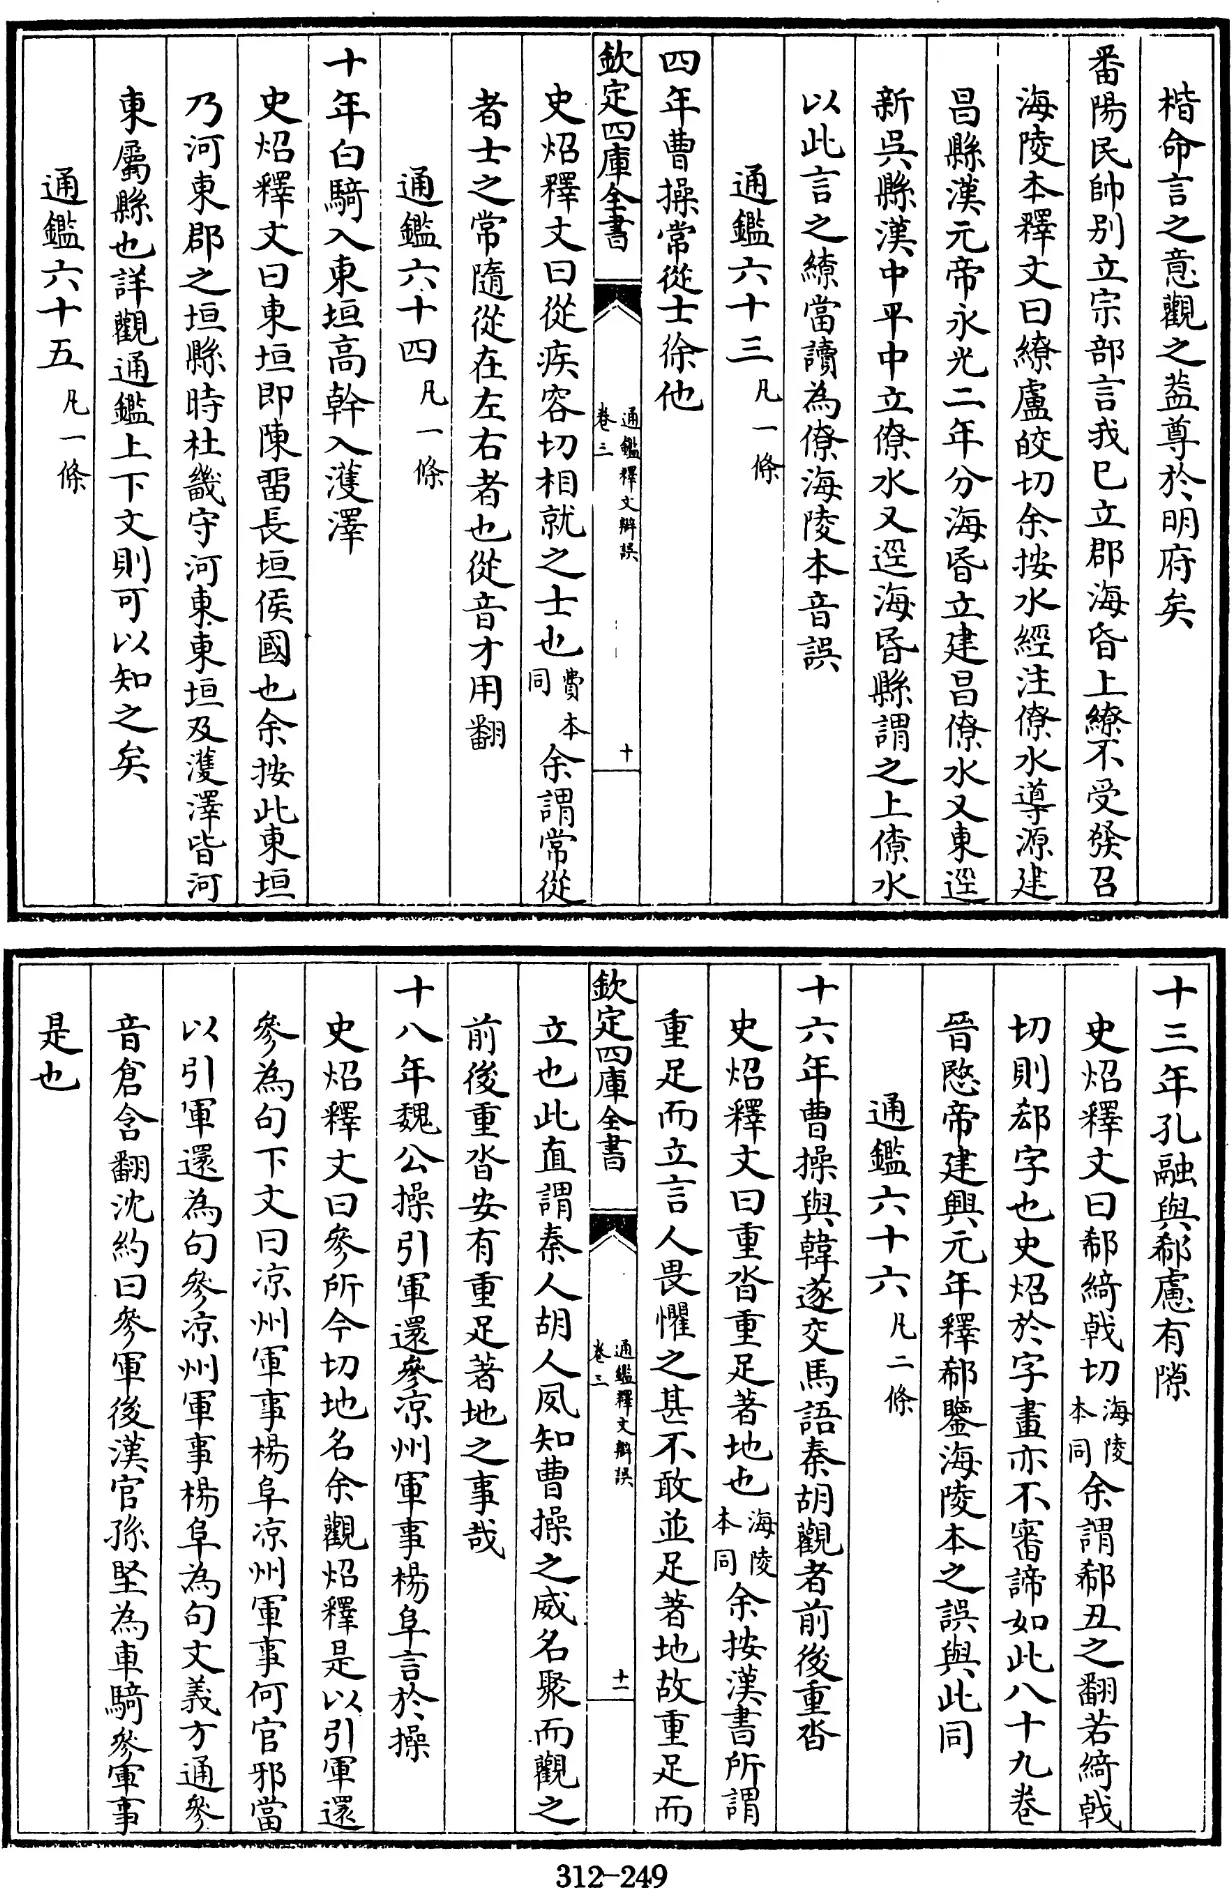 楷命言之意觀之葢尊於明府矣
番陽民帥別立宗部言我已立郡海昏上繚不受發召
海陵本釋文曰繚盧皎切余按水經注僚水導源建
昌縣漢元帝永光二年分海昏立建昌僚水又東逕
新吳縣漢中平中立僚水又逕海昏縣謂之上僚水
以此言之繚當讀為僚海陵本音誤
通鑑六十三 凡一條
四年曹操常從士徐他
欽定四庫全書 通鑑釋文辯誤 卷三 十
史炤釋文曰從疾容切相就之士也 費本同 余謂常從
者士之常隨從在左右者也從音才用翻
通鑑六十四 凡一條
十年白騎入東垣高幹入濩澤
史炤釋文曰東垣即陳留長垣侯國也余按此東垣
乃河東郡之垣縣時杜畿守河東東垣及濩澤皆河
東屬縣也詳觀通鑑上下文則可以知之矣
通鑑六十五 凡一條
十三年孔融與郗慮有隙
史炤釋文曰郗綺戟切 海陵本同 余謂郗丑之翻若綺戟
切則郄字也史炤於字畫亦不審諦如此八十九卷
晉愍帝建興元年釋郗鑒海陵本之誤與此同
通鑑六十六 凡二條
十六年曹操與韓遂交馬語秦胡觀者前後重沓
史炤釋文曰重沓重足著地也 海陵本同 余按漢書所謂
重足而立言人畏懼之甚不敢並足著地故重足而
欽定四庫全書 通鑑釋文辯誤 卷三 十一
立也此直謂秦人胡人夙知曹操之威名聚而觀之
前後重沓安有重足著地之事哉
十八年魏公操引軍還參涼州軍事楊阜言於操
史炤釋文曰參所今切地名余觀炤釋是以引軍還
參為句下文曰涼州軍事楊阜涼州軍事何官邪當
以引軍還為句參涼州軍事楊阜為句文義方通參
音倉含翻沈約曰參軍後漢官孫堅為車騎參軍事
是也
312-249